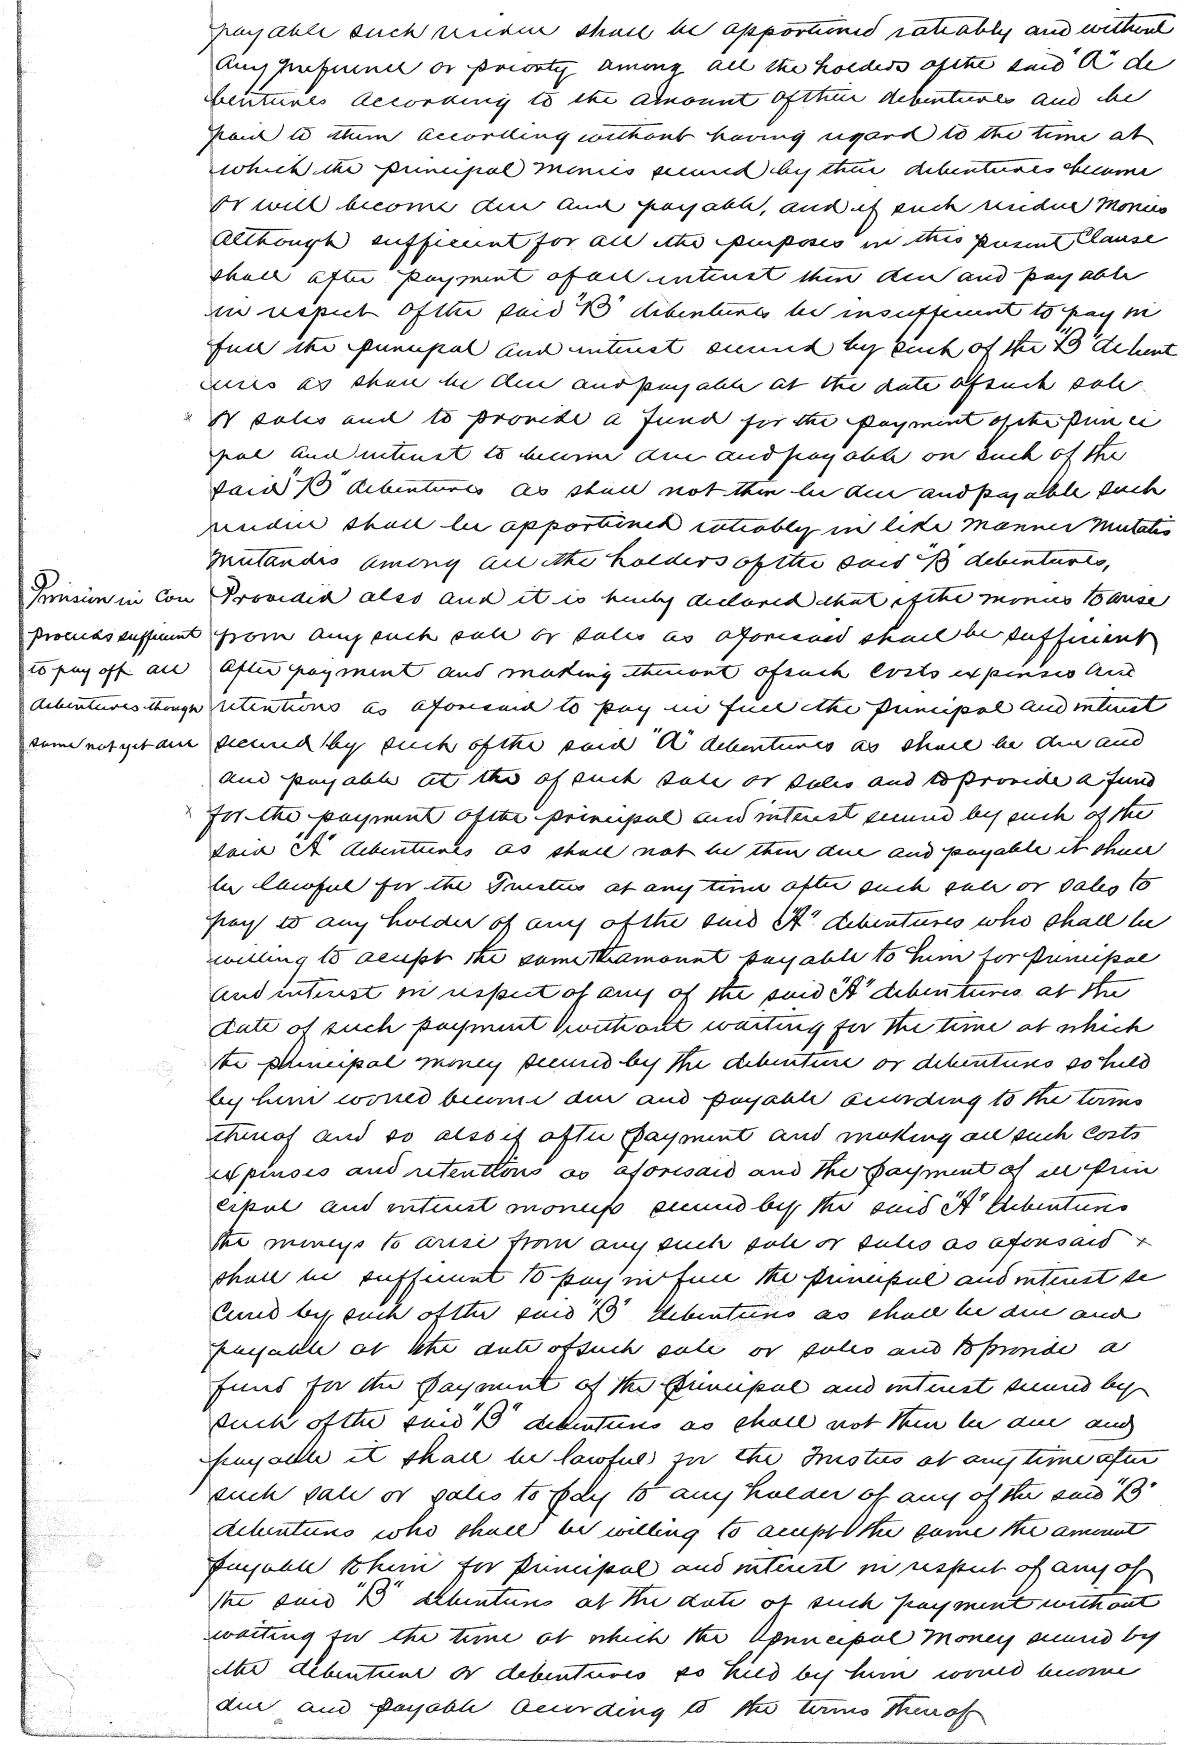 payable such residue shall be apportioned rateably and without
any preference or priorty among all the holders of the said "A" de
bentures according to the amount of their debentures and be
paid to them according without having regard to the time at
which the principal monies secured by their debentures become
or will become due and payable, and if such residue monies
although sufficient for all the purposes in this present Clause
shall after payment of all interest then due and payable
in respect of the said "B" debentures be insufficient to pay in
full the principal and interest secured by such of the "B" debent
ures as shall be due and payable at the date of such sale
or sales and to provide a fund for the payment of the princi
pal and interest to become due and payable on such of the
said "B" debentures as shall not then be due and payable such
residue shall be apportioned rateably in like manner mutatis
mutandis among all the holders of the said "B" debentures,
Provision in Con
Provided also and it is hereby declared that if the monies to arise
proceeds sufficient
from any such sale or sales as aforesaid shall be sufficient
to pay off all
after payment and making thereout of such costs expenses and
debentures though
retentions as aforesaid to pay in full the principal and interest
same not yet due
secured by such of the said "A" debentures as shall be due and
and payable at the of such sale or sales and to provide a fund
for the payment of the principal and interest secured by such of the
said "A" debentures as shall not be then due and payable it shall
be lawful for the Trustees at any time after such sale or sales to
pay to any holder of any of the said "A" debentures who shall be
willing to accept the same the amount payable to him for principal
and interest in respect of any of the said "A" debentures at the
date of such payment without waiting for the time at which
the principal money secured by the debenture or debentures so held
by him would become due and payable according to the terms
thereof and so also if after payment and making all such costs
expenses and retentions as aforesaid and the payment of all prin
cipal and interest moneys secured by the said "A" debentures
the moneys to arise from any such sale or sales as aforesaid x
shall be sufficient to pay in full the principal and interest se
cured by such of the said "B" debentures as shall be due and
payable at the date of such sale or sales and to provide a
fund for the payment of the principal and interest secured by
such of the said "B" debentures as shall not then be due and
payable it shall be lawful for the Trustees at any time after
such sale or sales to pay to any holder of any of the said "B"
debentures who shall be willing to accept the same the amount
payable to him for principal and interest in respect of any of
the said "B" debentures at the date of such payment without
waiting for the time at which the principal money secured by
the debenture or debentures so held by him would become
due and payable according to the terms thereof